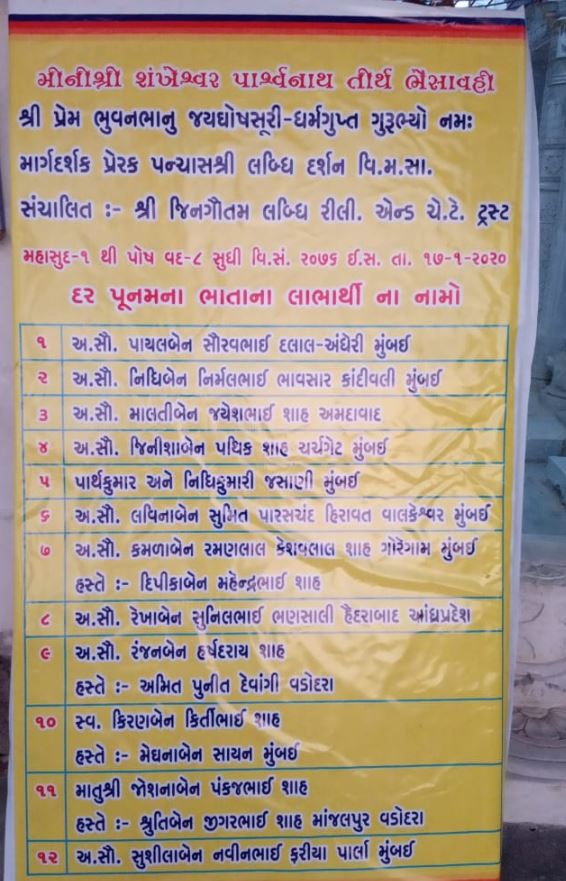 મીનીશ્રી શંખેશ્વર પાર્શ્વનાથ તીર્થ ભૈસાવહી
શ્રી પ્રેમ ભુવનભાનુ જયઘોષસૂરી-ધર્મગુપ્ત ગુરૂભ્યો નમઃ
માર્ગદર્શક પ્રેરક પન્યાસશ્રી લબ્ધિ દર્શન વિ.મ.સા.
સંચાલિત :- શ્રી જિનગૌતમ લબ્ધિ રીલી. એન્ડ ચે.ટે. ટ્રસ્ટ
મહાસુદ-૧ થી પોષ વદ-૮ સુધી વિ.સં. ૨૦૭૬ ઈ.સ. તા. ૧૭-૧-૨૦૨૦
દર પૂનમના ભાતાના લાભાર્થી ના નામો
૧ અ.સૌ. પાયલબેન સૌરવભાઈ દલાલ-અંધેરી મુંબઈ
૨ અ.સૌ. નિધિબેન નિર્મલભાઈ ભાવસાર કાંદીવલી મુંબઈ
૩ અ.સૌ. માલતીબેન જયેશભાઈ શાહ અમદાવાદ
૪ અ.સૌ. જિનીશાબેન પથિક શાહ ચર્ચગેટ મુંબઈ
૫ પાર્થકુમાર અને નિધિકુમારી જસાણી મુંબઈ
૬ અ.સૌ. લવિનાબેન સુમિત પારસચંદ હિરાવત વાલકેશ્વર મુંબઈ
૭ અ.સૌ. કમળાબેન રમણલાલ કેશવલાલ શાહ ગોરેગામ મુંબઈ
હસ્તે :- દિપીકાબેન મહેન્દ્રભાઈ શાહ
૮ અ.સૌ. રેખાબેન સુનિલભાઈ ભણસાલી હૈદરાબાદ આંધ્રપ્રદેશ
૯ અ.સૌ. રંજનબેન હર્ષદરાય શાહ
હસ્તે :- અમિત પુનીત દેવાંગી વડોદરા
૧૦ સ્વ. કિરણબેન કિર્તીભાઈ શાહ
હસ્તે :- મેઘનાબેન સાયન મુંબઈ
૧૧ માતુશ્રી જોશનાબેન પંકજભાઈ શાહ
હસ્તે :- શ્રુતિબેન જીગરભાઈ શાહ માંજલપુર વડોદરા
૧૨ અ.સૌ. સુશીલાબેન નવીનભાઈ ફરીયા પાર્લા મુંબઈ